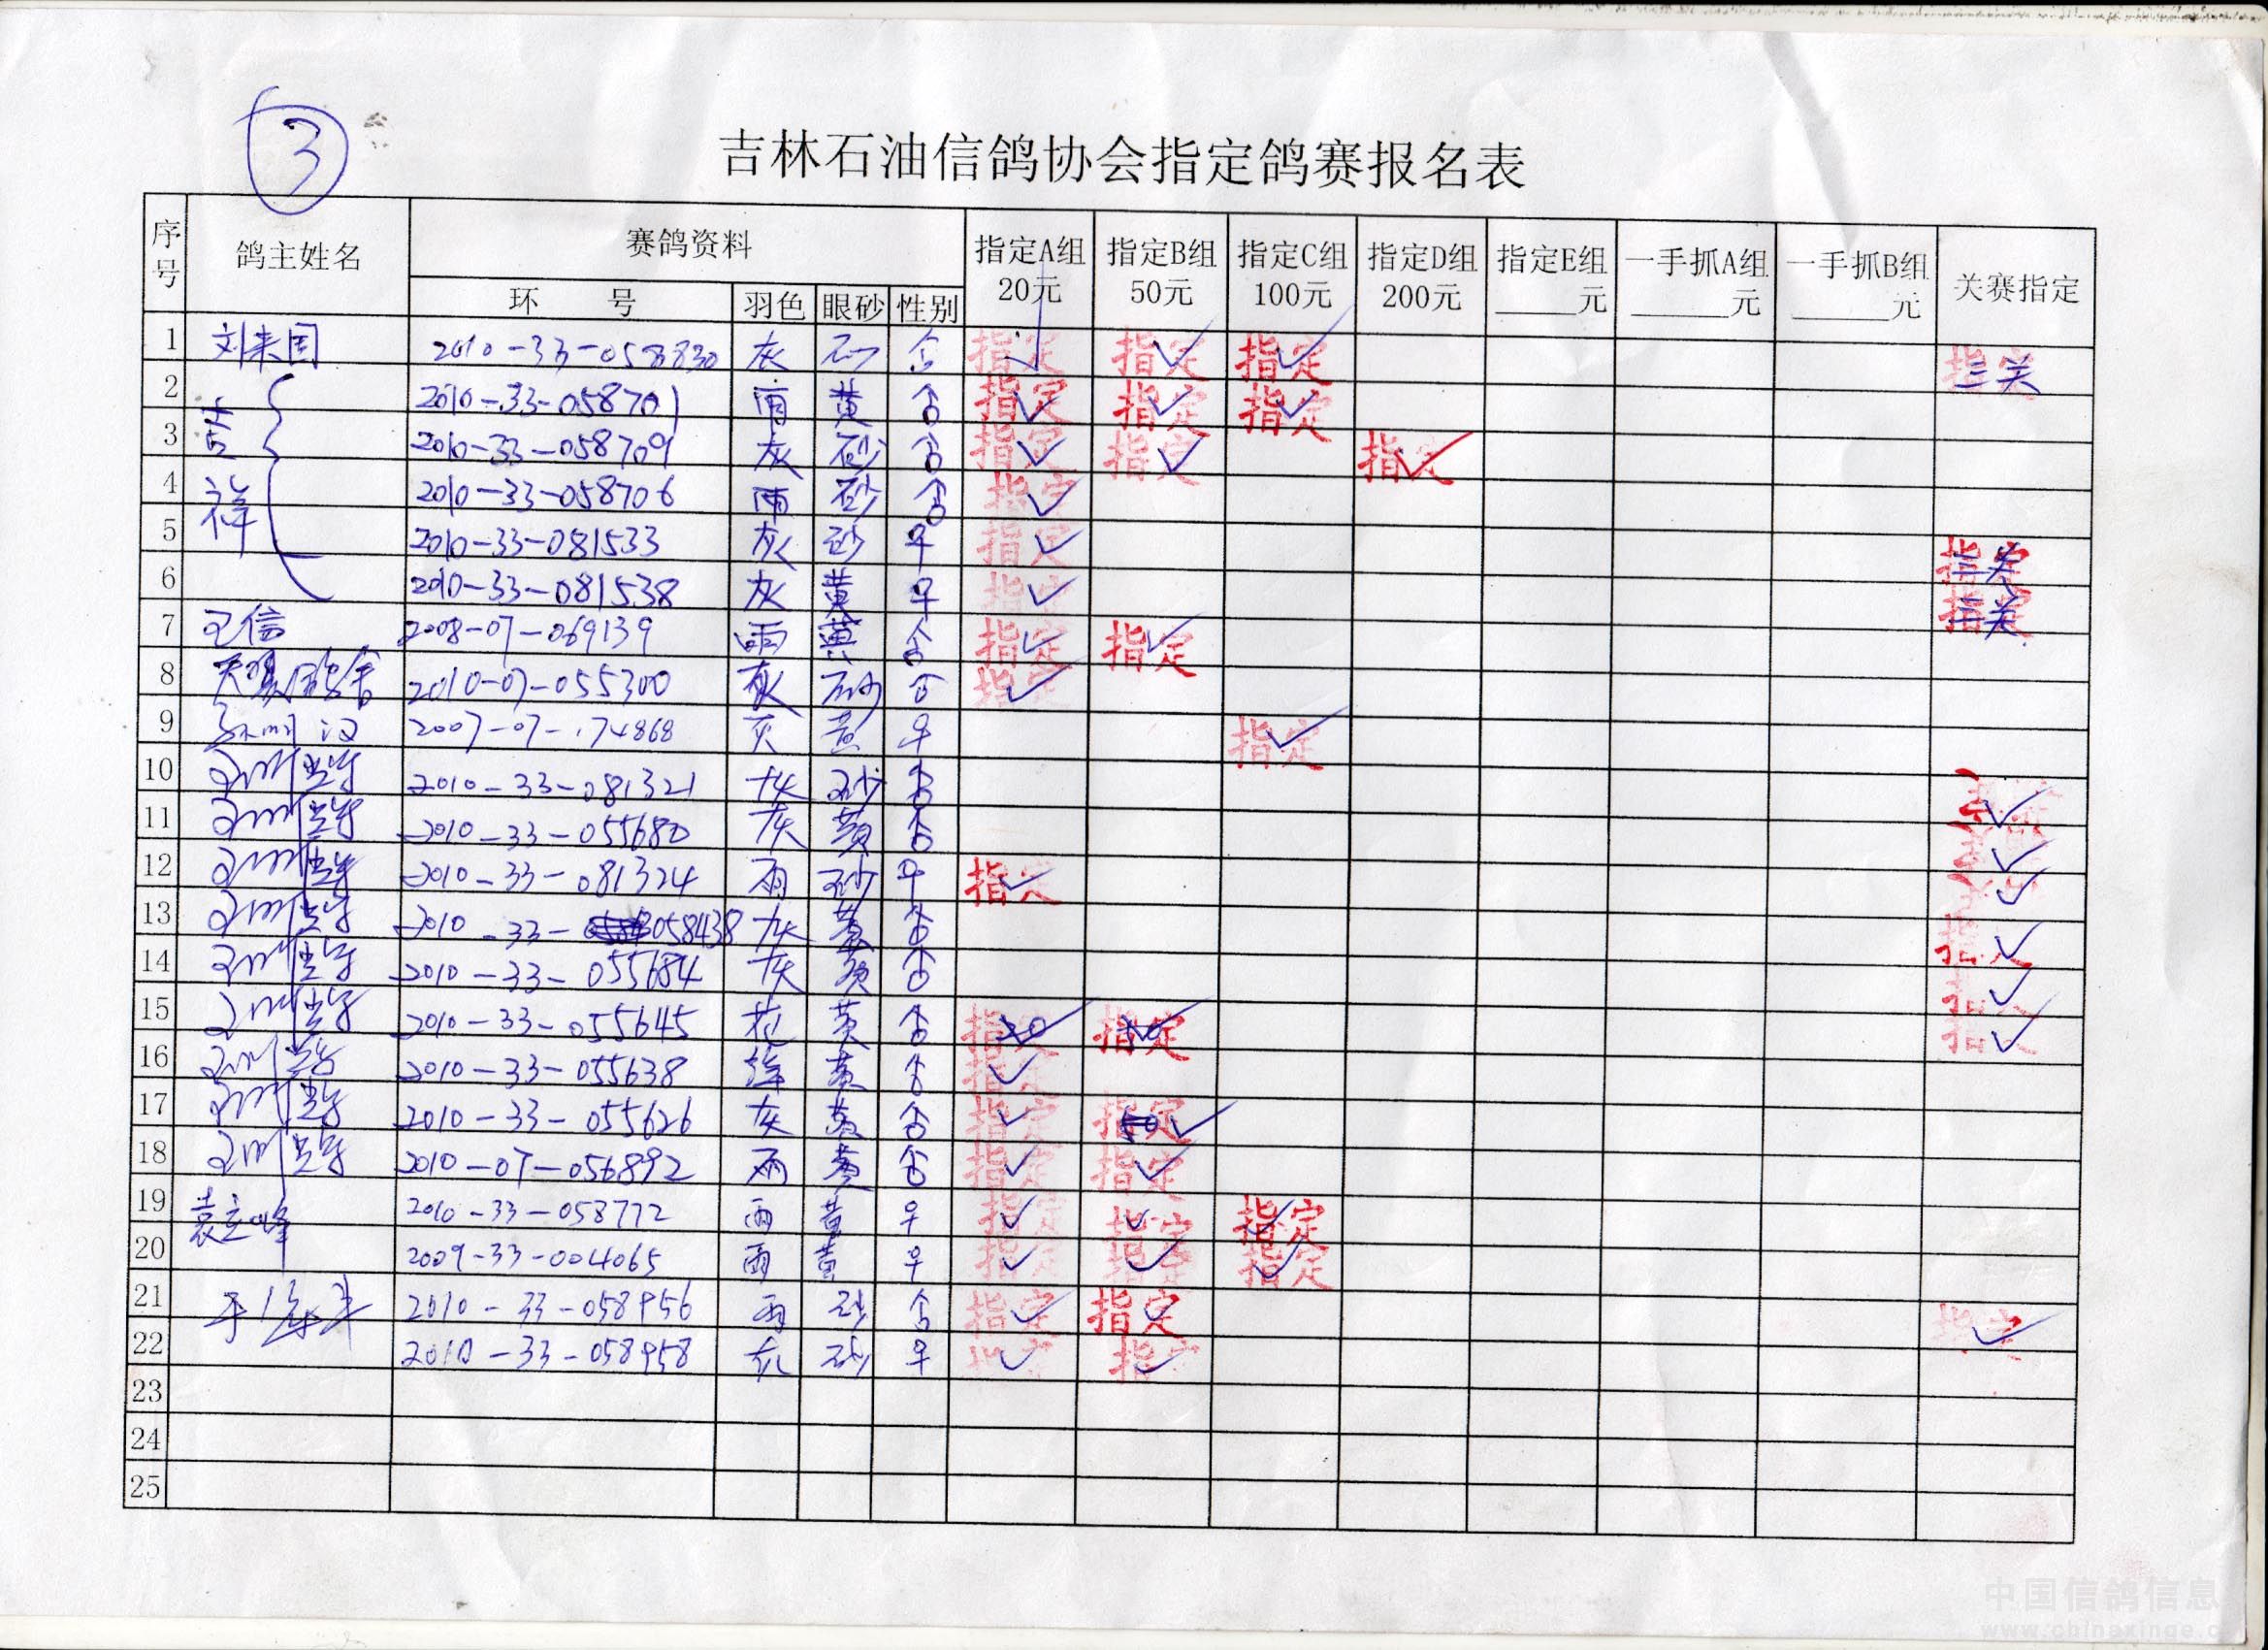 3
吉林石油信鸽协会指定鸽赛报名表
序号 鸽主姓名 赛鸽资料 指定A组 20元 指定B组 50元 指定C组 100元 指定D组 200元 指定E组 ____元 一手抓A组 ____元 一手抓B组 ____元 关赛指定
环 号 羽色 眼砂 性别
1 刘来国 2010-33-058830 灰 砂 指定 指定 指定 指定 二关
2 吉祥 2010-33-058701 雨 黄 指定 指定 指定
3 2010-33-058709 灰 砂 指定 指定 指定
4 2010-33-058706 雨 砂 指定
5 2010-33-081533 灰 砂 指定 指定 二关
6 2010-33-081538 灰 黄 指定 指定 二关
7 王信 2008-07-069139 雨 黄 指定 指定
8 2010-07-055300 灰 砂 指定
9 2007-07-174868 灰 黄 指定
10 2010-33-081321 灰 砂
11 2010-33-055680 灰 黄
12 2010-33-081324 雨 砂 指定
13 2010-33-058438 灰 黄 指定
14 2010-33-055684 灰 黄 指定
15 2010-33-055645 花 黄 指定 20 指定 50 指定
16 2010-33-055638 绛 黄 指定
17 2010-33-055626 灰 黄 指定 指定 50
18 2010-07-056892 雨 黄 指定 指定
19 袁立峰 2010-33-058772 雨 黄 指定 指定 指定
20 2009-33-004065 雨 黄 指定 指定 指定
21 2010-33-058956 雨 砂 指定 指定 指定
22 2010-33-058958 灰 砂 指定 指定
23
24
25
中国信鸽信息
www.chinaxinge.c